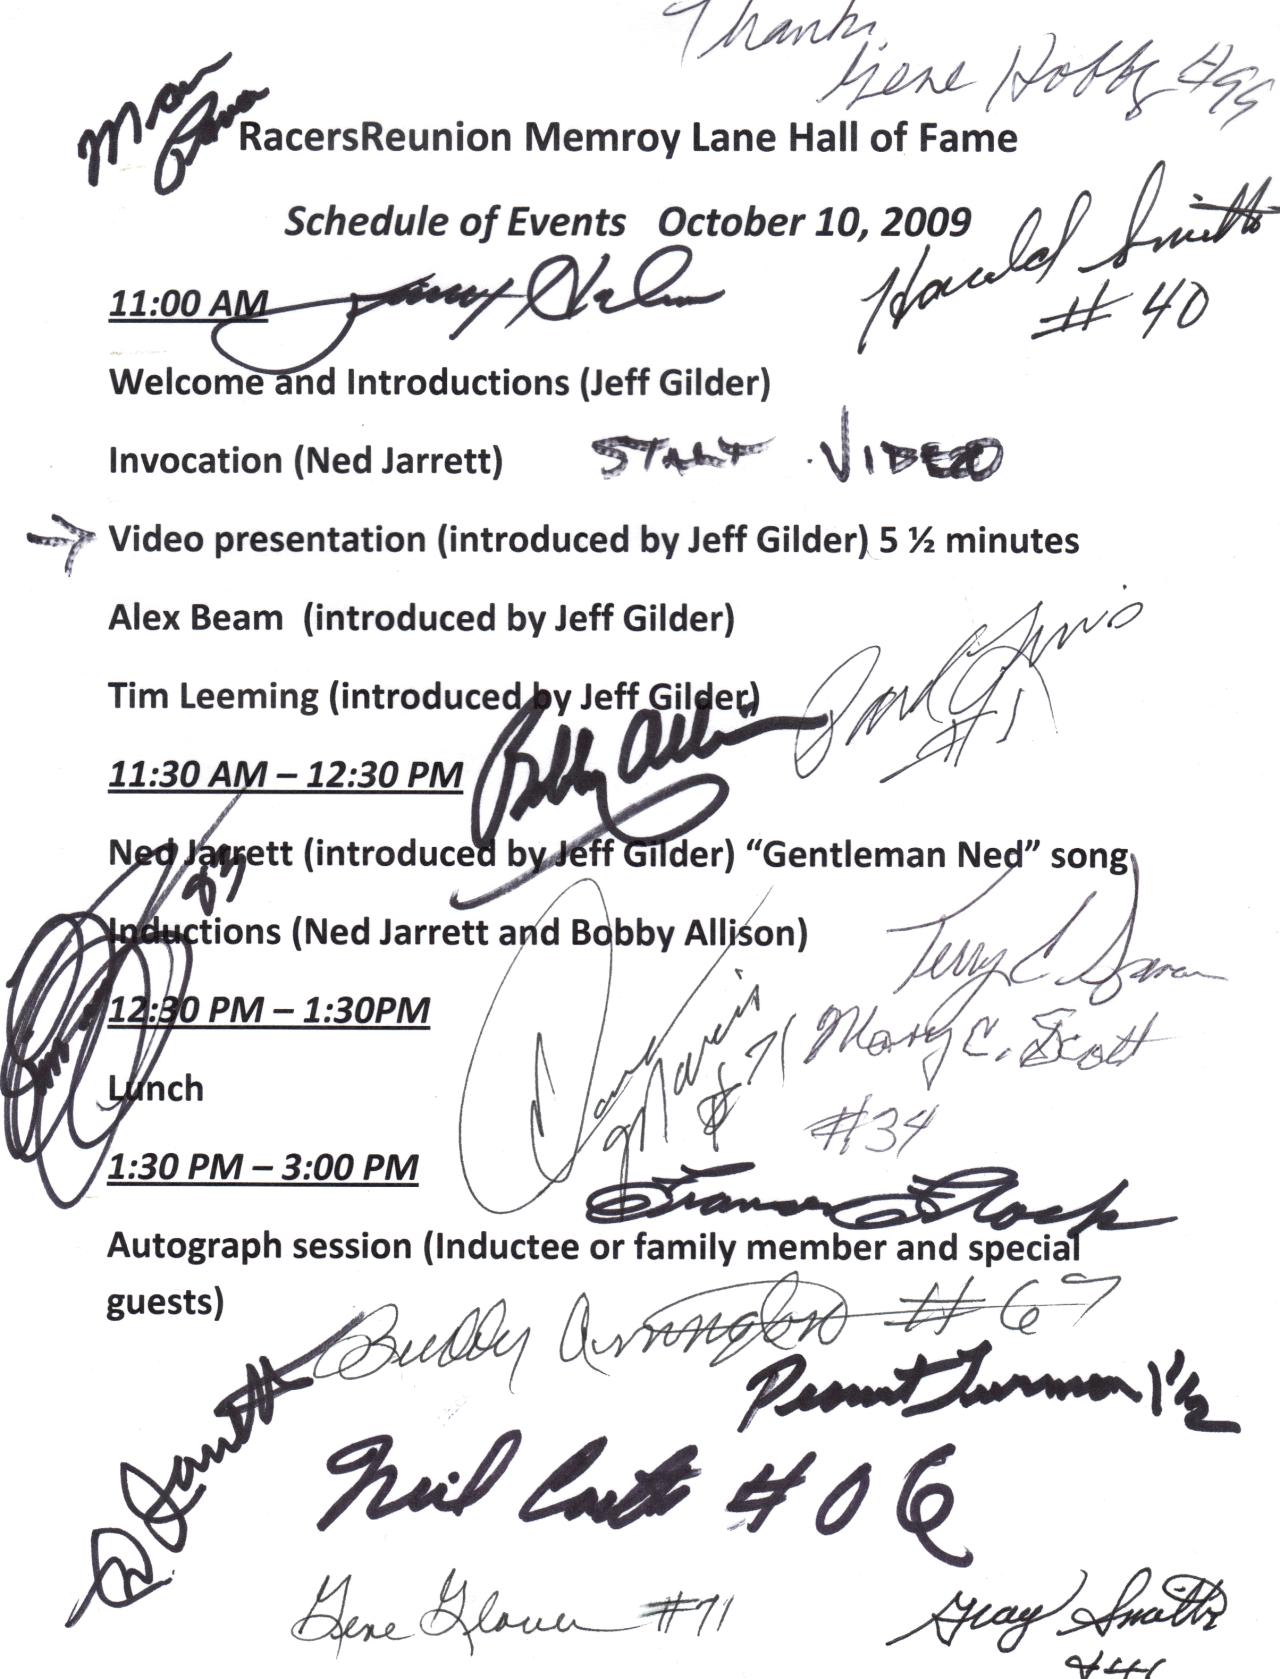 Thanks,
Gene Hobby #99
RacersReunion Memroy Lane Hall of Fame
Schedule of Events   October 10, 2009
Harold Smith
# 40
11:00 AM
Welcome and Introductions (Jeff Gilder)
Invocation (Ned Jarrett)   START VIDEO
→ Video presentation (introduced by Jeff Gilder) 5 ½ minutes
Alex Beam  (introduced by Jeff Gilder)
Tim Leeming (introduced by Jeff Gilder)
Paul Lewis
#1
Bobby Allison
11:30 AM – 12:30 PM
Ned Jarrett (introduced by Jeff Gilder) “Gentleman Ned” song
Inductions (Ned Jarrett and Bobby Allison)
Terry C.
12:30 PM – 1:30PM
Dave Marcis
#71
Mary C. Scott
#34
Lunch
1:30 PM – 3:00 PM
Frances Flock
Autograph session (Inductee or family member and special
guests)
Buddy Arrington #67
Peanut Turman 1½
Jarrett
Neil Castles #06
Gene Glover #71
Gray Smith